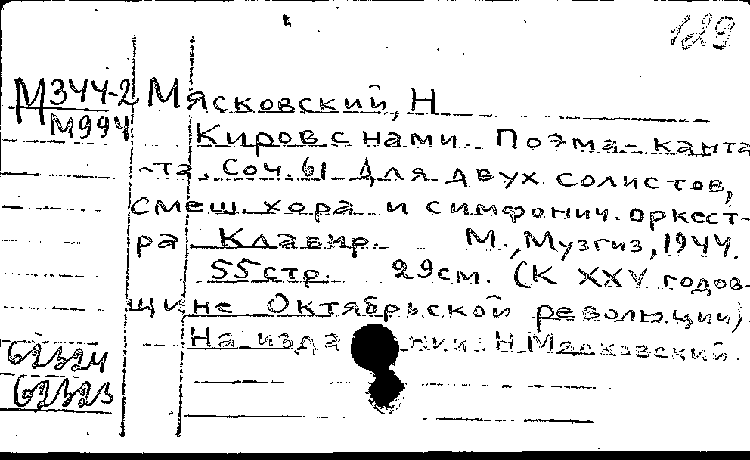 129
М344-2 Мясковский, Н
М994 Киров с нами. Поэма-канта
-та. Соч. 61 Для двух солистов,
смеш. хора и симфонич. оркест-
ра Клавир. М., Музгиз, 1944.
55 стр. 29 см. (К XXV годов-
щине Октябрьской революции)
На изда нии: Н. Мясковский.
62324
62323